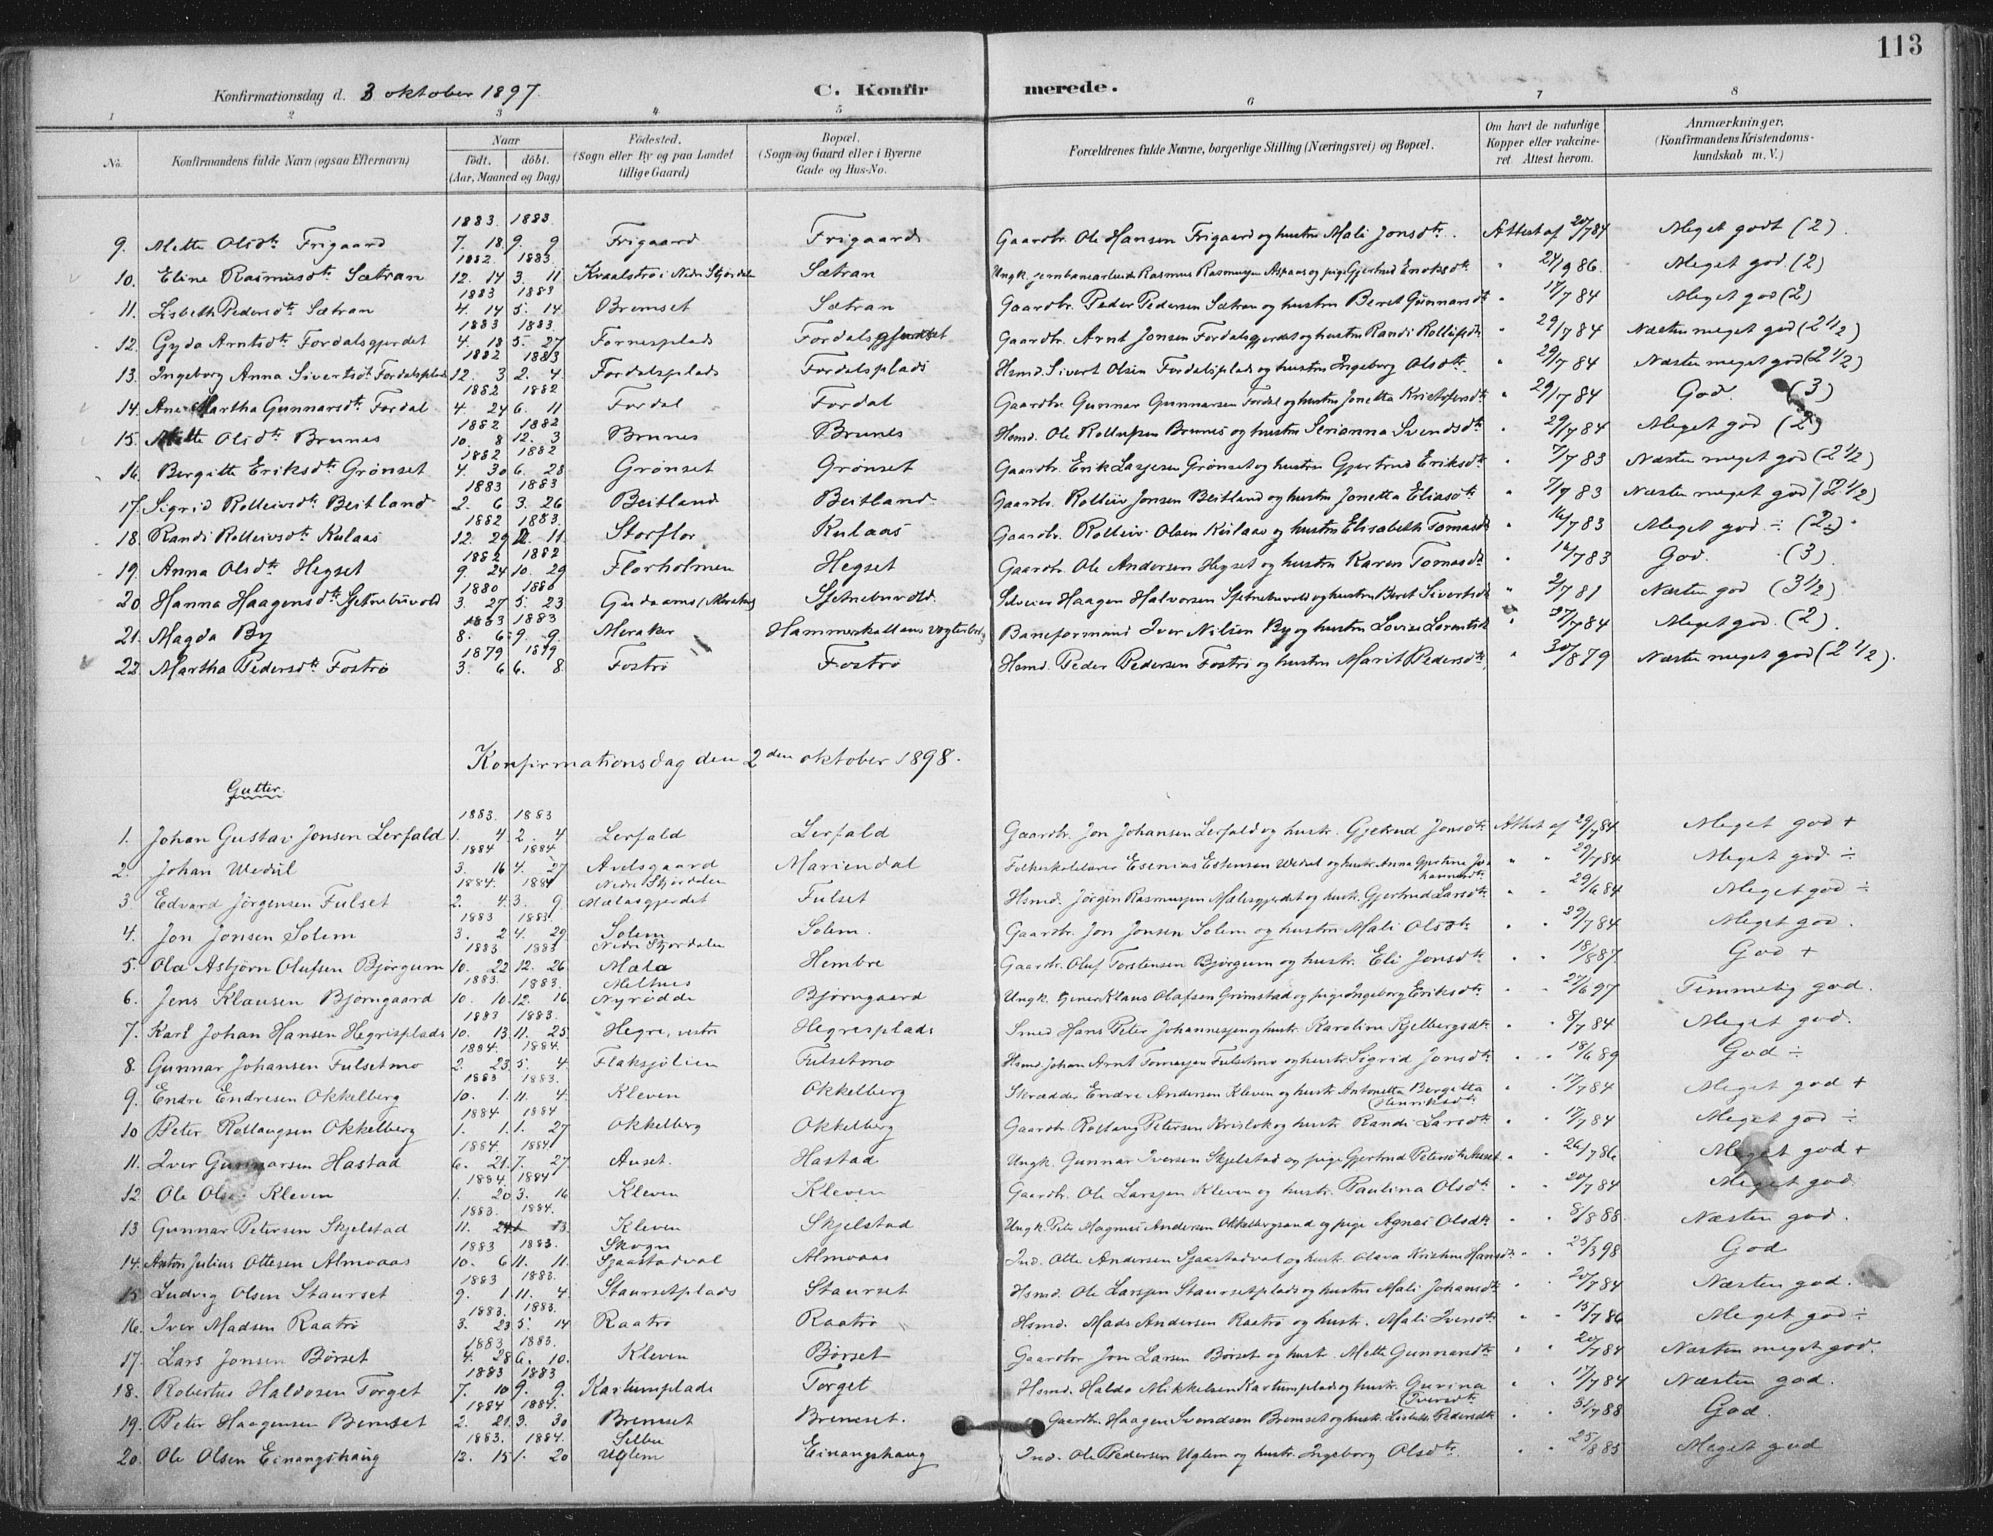 113
Konfirmationsdag d. 3 oktober 1897. C. Konfirmerede.
1 2 3 4 5 6 7 8
No. Konfirmandens fulde Navn (ogsaa Efternavn) Naar født. døbt. (Aar, Maaned og Dag) Fødested. (Sogn eller By og paa Landet tillige Gaard) Bopæl. (Sogn og Gaard eller i Byerne Gade og Hus-No. Forældrenes fulde Navne, borgerlige Stilling (Næringsvei) og Bopæl. Om havt de naturlige Kopper eller vakcineret. Attest herom. Anmærkninger. (Konfirmandens Kristendomskundskab m. V.)
1883. 1883.
9. Mette Olsdtr Frigaard 7. 18 9. 9 Frigaard Frigaard Gaardbr. Ole Hansen Frigaard og hustru Mali Jonsdtr. Attest af 20/7 84 Meget godt (2).
1882. 1883.
10. Eline Rasmusdtr Sætran 12. 14 3. 11 Kvaalstrø i Nedre Stjørdal Sætran Ungk. jernbanearbeid. Rasmus Rasmusen Aspaas og pige Gjertrud Enoksdtr " 24/9 86. Meget god (2)
1883 1883
11. Lisbeth Pedersdtr Sætran 4. 14 5. 14 Bremset Sætran Gaardbr. Peder Pedersen Sætran og hustru Beret Gunnarsdtr " 17/7 84 Meget god (2)
1883 1883.
12. Gyda Arntsdtr Fordalsgjerdet 4. 18 5. 27 Fornesplads Fordalsgjerdet Gaardbr. Arnt Jonsen Fordalsgjerdet og hustru Randi Rollefsdtr " 29/7 84 Næsten meget god (2 1/2)
1882 1883
13. Ingeborg Anna Sivertsdtr Fordalsplads 12. 3 2. 4. Fordalsplads Fordalsplads Hsmd. Sivert Olsen Fordalsplads og hustru Ingeborg Olsdtr. " 29/7 84 Næsten meget god (2 1/2)
1882 1882
14. Ane Martha Gunnarsdtr Fordal 4. 24 6. 11 Fordal Fordal Gaardbr. Gunnar Gunnarsen Fordal og hustru Jonetta Kristofersdtr " 29/7 84 God. (3)
1882 1882
15. Mette Olsdtr Brunes 10. 8 12. 3 Brunes Brunes Hsmd. Ole Rollufsen Brunes og hustru Serianna Svendsdtr " 29/7 84 Meget god (2)
1882 1882
16. Bergitte Eriksdtr Grønset 4. 30 6. 28 Grønset Grønset Gaardbr. Erik Larsen Grønset og hustru Gjertrud Eriksdtr " 7/7 83 Næsten meget god (2 1/2)
1883 1883
17. Sigrid Rolleivsdtr Beitland 2. 6 3. 26 Beitland Beitland Gaardbr. Rolleiv Jonsen Beitland og hustru Jonetta Eliasdtr " 7/9 83 Næsten meget god (2 1/2)
1882 1883.
18 Randi Rolleivsdtr Kulaas 12. 29 2. 11 Storflor Kulaas Gaardbr. Rolleiv Olsen Kulaas og hustru Elisabeth Tomasdtr " 16/7 83 Meget god ÷ (2÷)
1882 1882
19. Anna Olsdtr Hegset 9. 24 10. 29 Florholmen Hegset Gaardbr. Ole Andersen Hegset og hustru Karen Tomasdtr " 16/7 83 God. (3)
1880 1880
20. Hanna Haagensdtr Sjetnebuvold 3. 27 5. 23 Gudaams, Merakers Sjetnebuvold. Selveier Haagen Halvorsen Sjetnebuvold og hustru Beret Sivertsdtr " 2/7 81 Næsten god (3 1/2)
1883 1883
21. Magda By 8. 6 9. 9. Meraker Hammerkallens vogterbol. Baneformand Iver Nilsen By og hustru Lovise Lorentsdtr " 27/7 84 Meget god. (2).
1879 1879
22. Martha Pedersdtr Fostrø 3. 6 6. 8 Fostrø Fostrø Hsmd. Peder Pedersen Fostrø og hustru Marit Pedersdtr " 30/8 79 Næsten meget god (2 1/2).
Konfirmationsdag den 2den oktober 1898.
Gutter.
1883. 1883
1. Johan Gustav Jonsen Lerfald 1. 4 2. 4 Lerfald Lerfald Gaardbr. Jon Johansen Lerfald og hustr. Gjertrud Jonsdtr Attest af 29/7 84 Meget god +
1884 1884
2. Johan Wedul 3. 16 4. 27 Avelsgaard Mariendal Folkeskolelærer Esenias Estensen Wedul og hustr. Anna Gjertine Johannesdtr " " 29/7 84 Meget god ÷
1884. 1884 Nedre Stjørdalen
3 Edvard Jørgensen Fulset 2. 4. 3. 9. Mælasgjerdet Fulset Hsmd. Jørgen Rasmusen Mælesgjerdet og hustr. Gjertrud Larsdtr " " 29/6 84 Meget god ÷
1883 1883
4. Jon Jonsen Solem 3. 2 4. 29 Solem Solem. Gaardbr. Jon Jonsen Solem og hustru Mali Olsdtr " " 29/7 84 Meget god.
1883. 1883 Nedre Stjørdalen
5. Ole Asbjørn Olufsen Bjørgum 10. 22 12. 26 Mæla Hembre Gaardbr. Oluf Torstensen Bjørgum og hustr. Eli Jonsdtr " " 18/8 87. God +
1883. 1883. Melhus
6. Jens Klausen Bjørngaard 10. 10 12. 16 Nyrødde Bjørngaard Ungk. tjener Klaus Olafsen Grimstad og pige Ingeborg Eriksdtr " " 27/6 97 Temmelig god.
1883 1883.
7. Karl Johan Hansen Hegrisplads 10. 13 11. 25 Hegre, vestre Hegresplads Smed Hans Peter Johannesen og hustr. Karoline Kjelbergsdtr " " 8/7 84 Meget god.
1884. 1884.
8. Gunnar Johansen Fulsetmo 2. 23 5. 4 Flaksjølien Fulsetmo Hsmd. Johan Arnt Tomasen Fulsetmo og hustr. Sigrid Jonsdtr " " 18/6 89 God ÷
1883 1883.
9. Endre Endresen Okkelberg 10. 1. 11. 4. Kleven Okkelberg Skrædder Endre Andersen Kleven og hustr. Antonetta Bergitta Henriksdtr " " 17/7 84 Meget god +
1884. 1884
10 Peter Rollaugsen Okkelberg 1. 1. 1. 27 Okkelberg Okkelberg Gaardbr. Rollaug Petersen Krislok og hustr. Randi Larsdtr " " 17/7 84 Meget god ÷
1884. 1884
11. Iver Gunnarsen Hastad 6. 21. 7. 27 Auset. Hastad Ungk. Gunnar Iversen Skjelstad og pige Gjertrud Petersdtr Auset " " 26/7 86 Meget god +
1884. 1884
12 Ole Olsen Kleven 1. 20 3. 16 Kleven Kleven Gaardbr. Ole Larsen Kleven og hustr. Paulina Olsdtr " " 20/7 84 Meget god
1883. 1884.
13 Gunnar Petersen Skjelstad 11. 24 1. 13. Kleven Skjelstad Ungk. Peter Magnus Andersen Okkelbergsand og pige Agnes Olsdtr " " 8/8 88. Næsten god.
1883 1883. Skogn
14. Anton Julius Ottesen Almoaas 10. 6 11. 11. Sjaastadval Almoaas Ind. Otte Andersen Sjaastadval og hustr. Olava Kristine Hansdtr " " 23/3 98 God
1883 1883.
15 Ludvig Olsen Staurset 9. 1 11. 4 Staursetplads Staurset Hsmd. Ole Larsen Staursetplads og hustru Mali Johansdtr " " 20/7 84 Næsten god.
1883. 1883.
16. Iver Madsen Raatrø 3. 23 5. 14 Raatrø Raatrø Hsmd. Mads Andersen Raatrø og hustr. Mali Iversdtr " " 15/7 86 Meget god ÷
1883 1883.
17. Lars Jonsen Børset 4. 28 6. 10. Kleven Børset Gaardbr Jon Larsen Børset og hustr. Mette Gunnarsdtr " " 20/7 84 Næsten meget god.
1883 1883
18. Robertus Haldosen Torget 7. 10 9. 9. Kartumplads Torget Hsmd. Haldo Mikkelsen Kartumplad og hustr. Gurina Iversdtr " " 17/7 84 Næsten god.
1884 1884.
19. Peter Haagensen Bremset 2. 21. 3. 30 Bremset Bremset. Gaardbr. Haagen Svendsen Bremset og hustr. Lisbeth Pedersdtr " " 31/7 88 God.
1883. 1884. Selbu
20. Ole Olsen Einangshaug 12. 15 1. 20 Uglem Einangshaug Ind. Ole Pedersen Uglem og hustr. Ingeborg Olsdtr. " " 25/8 85 Meget god